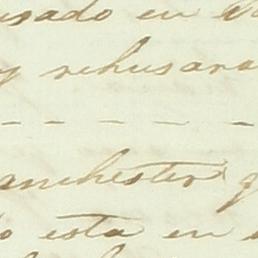 usado en
y rehusara
- - - - -
anchester q
o esta en